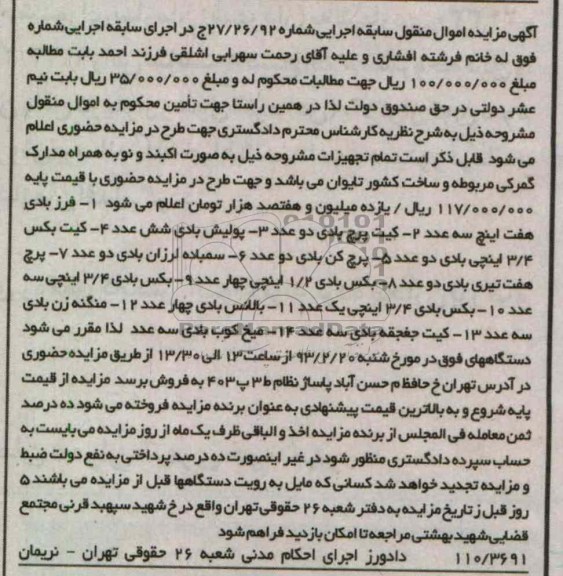 آگهی مزایده اموال منقول سابقه اجرایی شماره ۲۷/۲۶/۹۲ج در اجرای سابقه اجرایی شماره
فوق له خانم فرشته افشاری و علیه آقای رحمت سهرابی اشلقی فرزند احمد بابت مطالبه
مبلغ ۱۰۰/۰۰۰/۰۰۰ ریال جهت مطالبات محکوم له و مبلغ ۳۵/۰۰۰/۰۰۰ ریال بابت نیم
عشر دولتی در حق صندوق دولت لذا در همین راستا جهت تأمین محکوم به اموال منقول
مشروحه ذیل به شرح نظریه کارشناس محترم دادگستری جهت طرح در مزایده حضوری اعلام
می شود قابل ذکر است تمام تجهیزات مشروحه ذیل به صورت اکبند و نو به همراه مدارک
گمرکی مربوطه و ساخت کشور تایوان می باشد و جهت طرح در مزایده حضوری با قیمت پایه
۱۱۷/۰۰۰/۰۰۰ ریال / یازده میلیون و هفتصد هزار تومان اعلام می شود ۱- فرز بادی
هفت اینچ سه عدد ۲- کیت پرچ بادی دو عدد ۳- پولیش بادی شش عدد ۴- کیت بکس
۳/۴ اینچی بادی دو عدد ۵- پرچ کن بادی دو عدد ۶- سمباده لرزان بادی دو عدد ۷- پرچ
هفت تیری بادی دو عدد ۸- بکس بادی ۱/۲ اینچی چهار عدد ۹- بکس بادی ۳/۴ اینچی سه
عدد ۱۰- بکس بادی ۳/۴ اینچی یک عدد ۱۱- بالانس بادی چهار عدد ۱۲- منگنه زن بادی
سه عدد ۱۳- کیت جغجقه بادی سه عدد ۱۴- میخ کوب بادی سه عدد لذا مقرر می شود
دستگاههای فوق در مورخ شنبه ۹۳/۲/۲۰ از ساعت ۱۳ الی ۱۳/۳۰ از طریق مزایده حضوری
در آدرس تهران خ حافظ م حسن آباد پاساژ نظام ط۳ پ۴۰۳ به فروش برسد مزایده از قیمت
پایه شروع و به بالاترین قیمت پیشنهادی به عنوان برنده مزایده فروخته می شود ده درصد
ثمن معامله فی المجلس از برنده مزایده اخذ و الباقی ظرف یک ماه از روز مزایده می بایست به
حساب سپرده دادگستری منظور شود در غیر اینصورت ده درصد پرداختی به نفع دولت ضبط
و مزایده تجدید خواهد شد کسانی که مایل به رویت دستگاهها قبل از مزایده می باشند ۵
روز قبل ز تاریخ مزایده به دفتر شعبه ۲۶ حقوقی تهران واقع در خ شهید سپهبد قرنی مجتمع
قضایی شهید بهشتی مراجعه تا امکان بازدید فراهم شود
۱۱۰/۳۶۹۱ دادورز اجرای احکام مدنی شعبه ۲۶ حقوقی تهران - نریمان